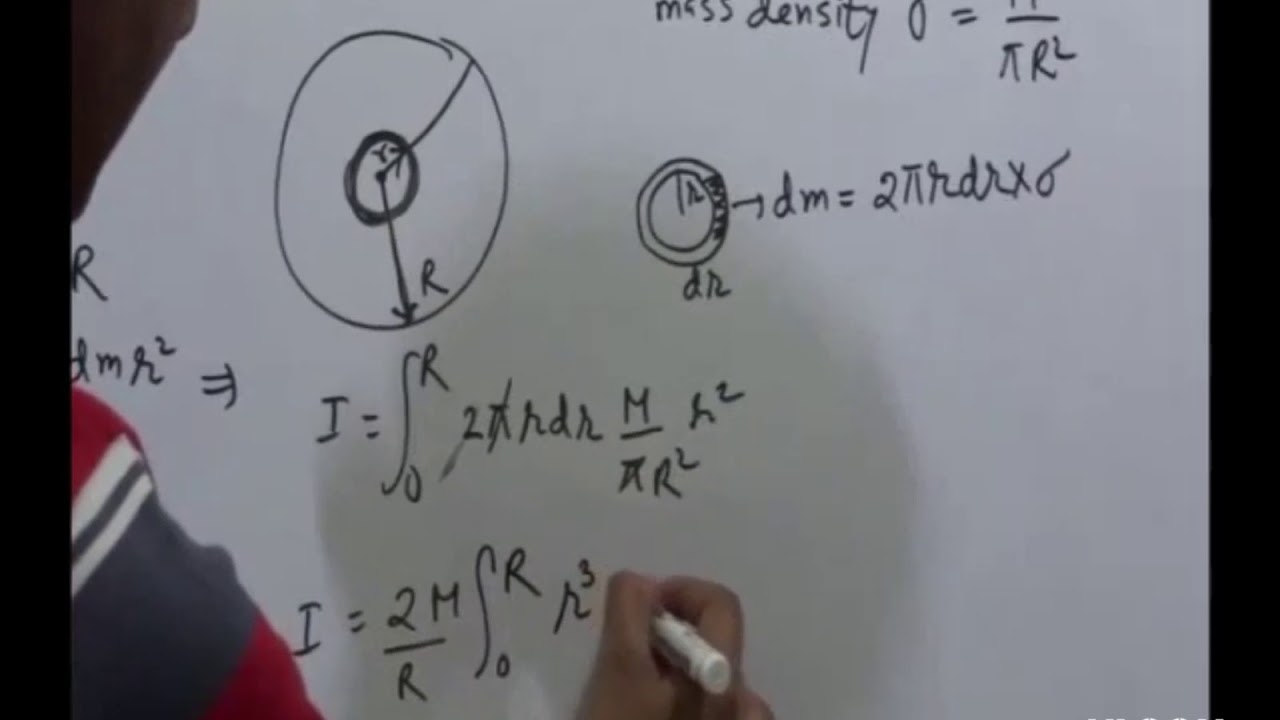 mass density σ = M/πR²
r
R
r → dm = 2πrdr×σ
dr
R
dmr² ⇒
I = ∫₀ᴿ 2πrdr M/πR² r²
I = 2M/R ∫₀ᴿ r³